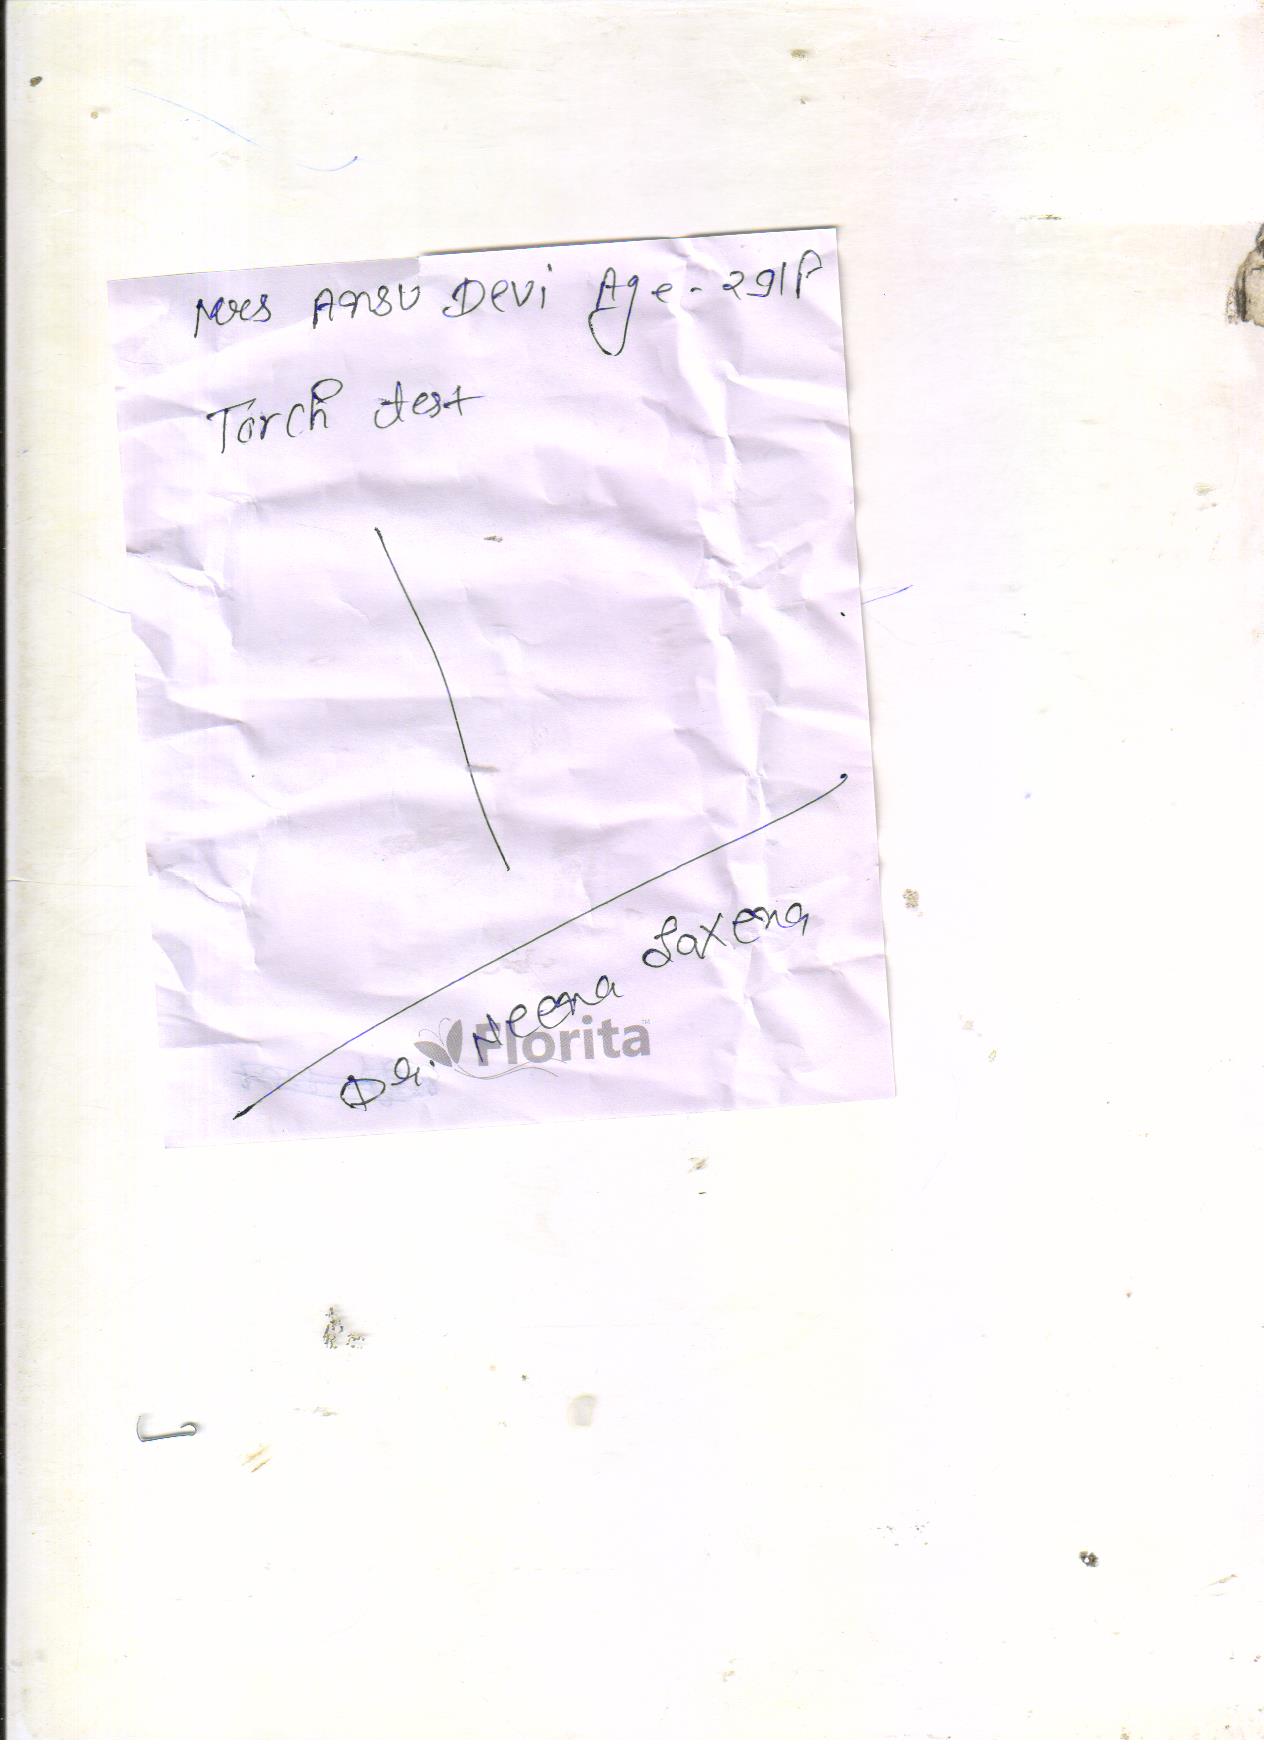 Mrs Ansu Devi Age - 29/F
Torch test
Dr. Neena Saxena
Florita